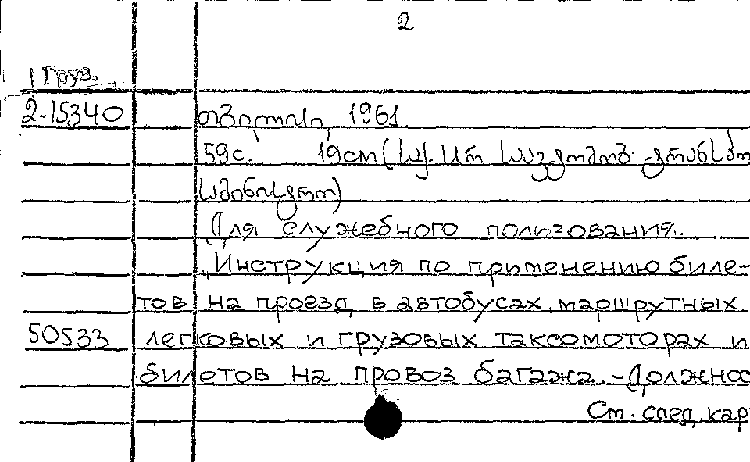 2
Груз.
2-15340 თბილისი, 1961.
59с. 19см (საქ. სსრ საავტომობ. ტრანსპო
სამინისტრო)
Для служебного пользования.
Инструкция по применению биле-
тов на проезд в автобусах, маршрутных
50533 легковых и грузовых таксомоторах и
билетов на провоз багажа.-Должнос
См. след. кар